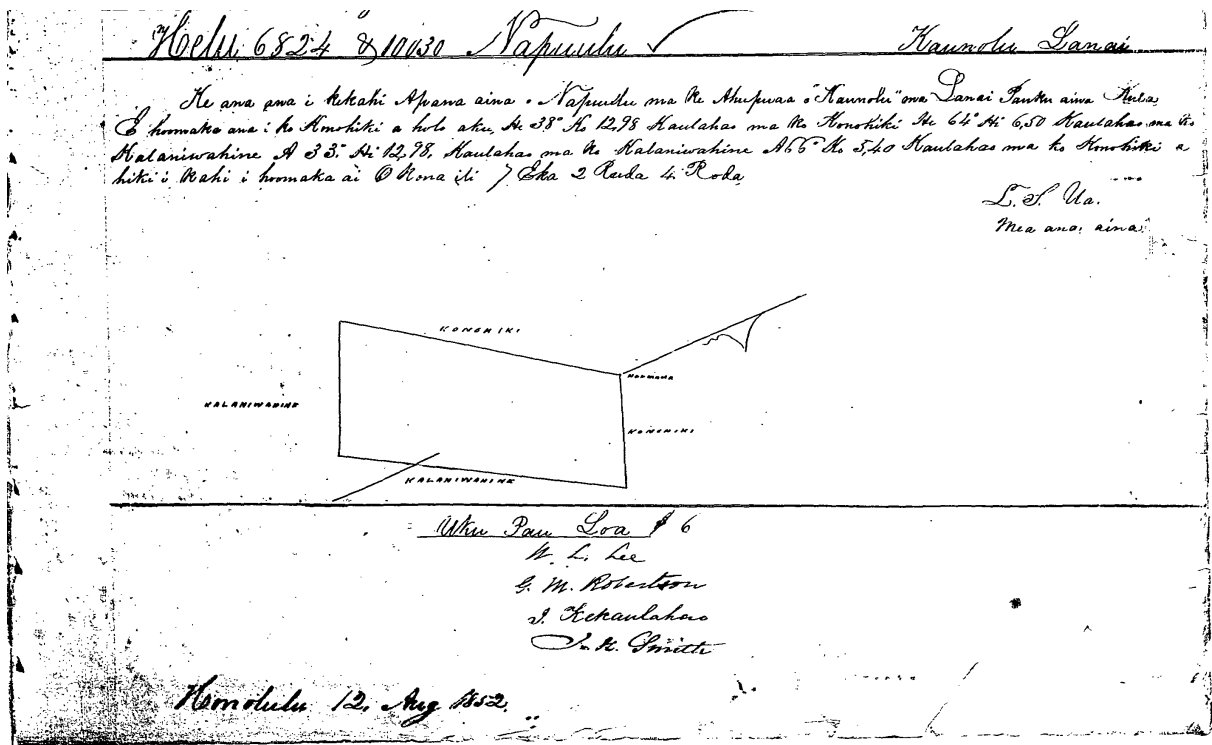 Helu 6824 & 10030 Napuulu ✓ Kaunolu Lanai
He ana ana i kekahi Apana aina o Napuulu ma ke Ahupuaa o "Kaunolu" ma Lanai Pauku aina Kula,
E hoomaka ana i ko Konohiki a holo aku, He 38° Ko 12,98 Kaulahao ma ko Konohiki He 64° Hi 6,50 Kaulahao ma ko
Kalaniwahine A 33° Hi 12,98, Kaulahao ma ko Kalaniwahine A 66° Ko 5,40 Kaulahao ma ko Konohiki a
hiki i kahi i hoomaka ai O Kona ili 7 Eka 2 Ruda 4 Roda
L. S. Ua.
Mea ana aina
KONOHIKI
HOOMAKA
KALANIWAHINE
KONOHIKI
KALANIWAHINE
Uku Pau Loa $ 6
W. L. Lee
G. M. Robertson
J. Kekaulahao
J. H. Smith
Honolulu 12, Aug 1852.